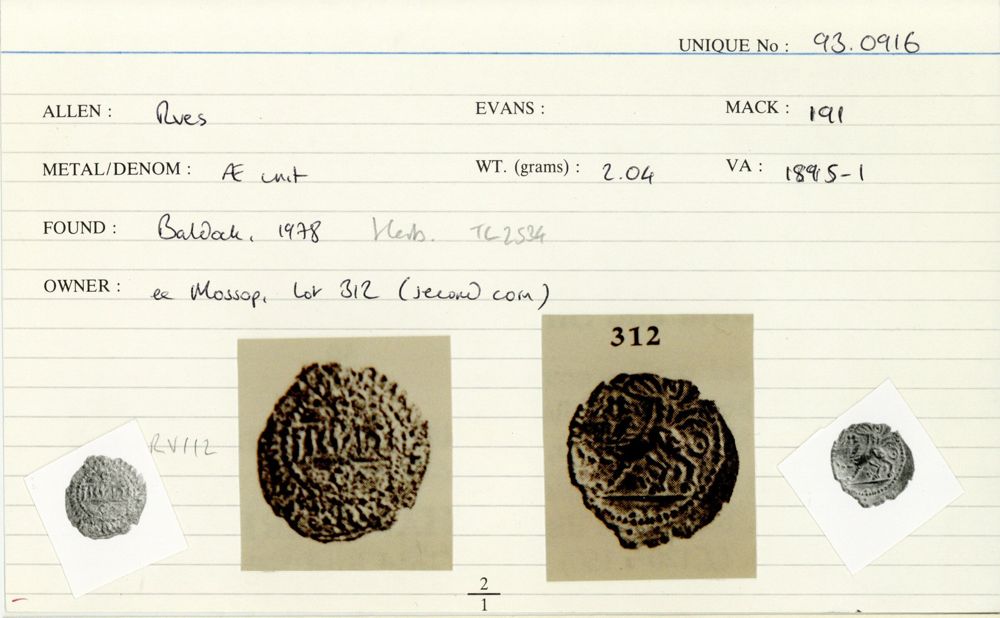 UNIQUE No : 93.0916
ALLEN : Rues EVANS : MACK : 191
METAL/DENOM : Æ unit WT. (grams) : 2.04 VA : 1895-1
FOUND : Baldock, 1978 Herts. TL2534
OWNER : ex Mossop, Lot 312 (second coin)
312
RVII2
2
1